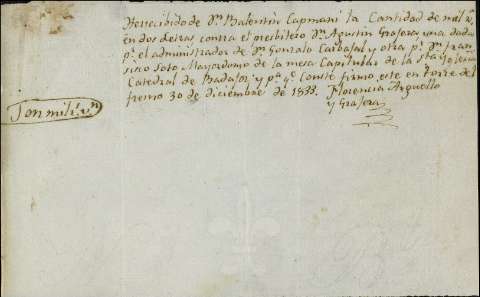 He recibido de Dn. Balentin Capmani la Cantidad de mil rs.
en dos letras contra el presbitero Dn. Agustin Grajera, una dada
pr. el administrador de Dn. Gonzalo Carbajal y otra pr. Dn. Fran
sisco Soto Mayordomo de la mesa Capitular de la Sta. Yglesia
Catedral de Badajoz y pa. qe. Conste firmo este en Torre del
fresno 30 de diciembre de 1833.
Florencia Arguello
y Grajera
Son mil rs. vn